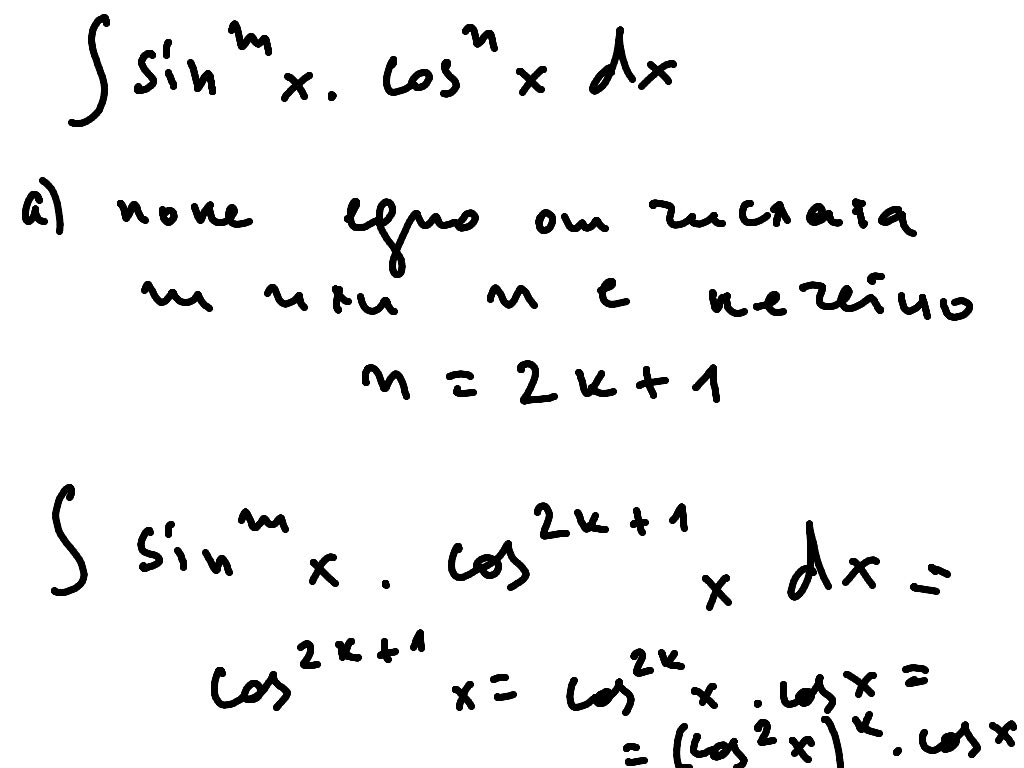 ∫ sin^m x . cos^n x dx
а) поне едно от числата
m или n е нечетно
n = 2k + 1
∫ sin^m x . cos^{2k + 1} x dx =
cos^{2k + 1} x = cos^{2k} x . cos x =
= (cos^2 x)^k . cos x